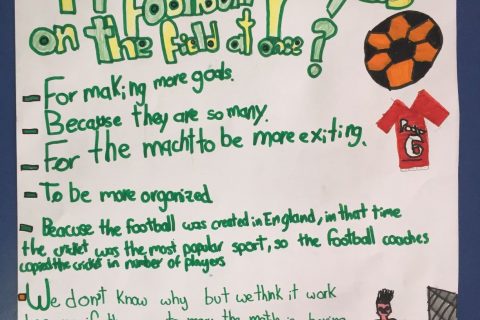 football
on the field at once?
- For making more goals.
- Because they are so many.
- For the macht to be more exiting.
- To be more organized
- Beacuse the football was created in England, in that time
the cricket was the most popular sport, so the football coaches
copied the cricket in number of players
- We don't know why but we think it work